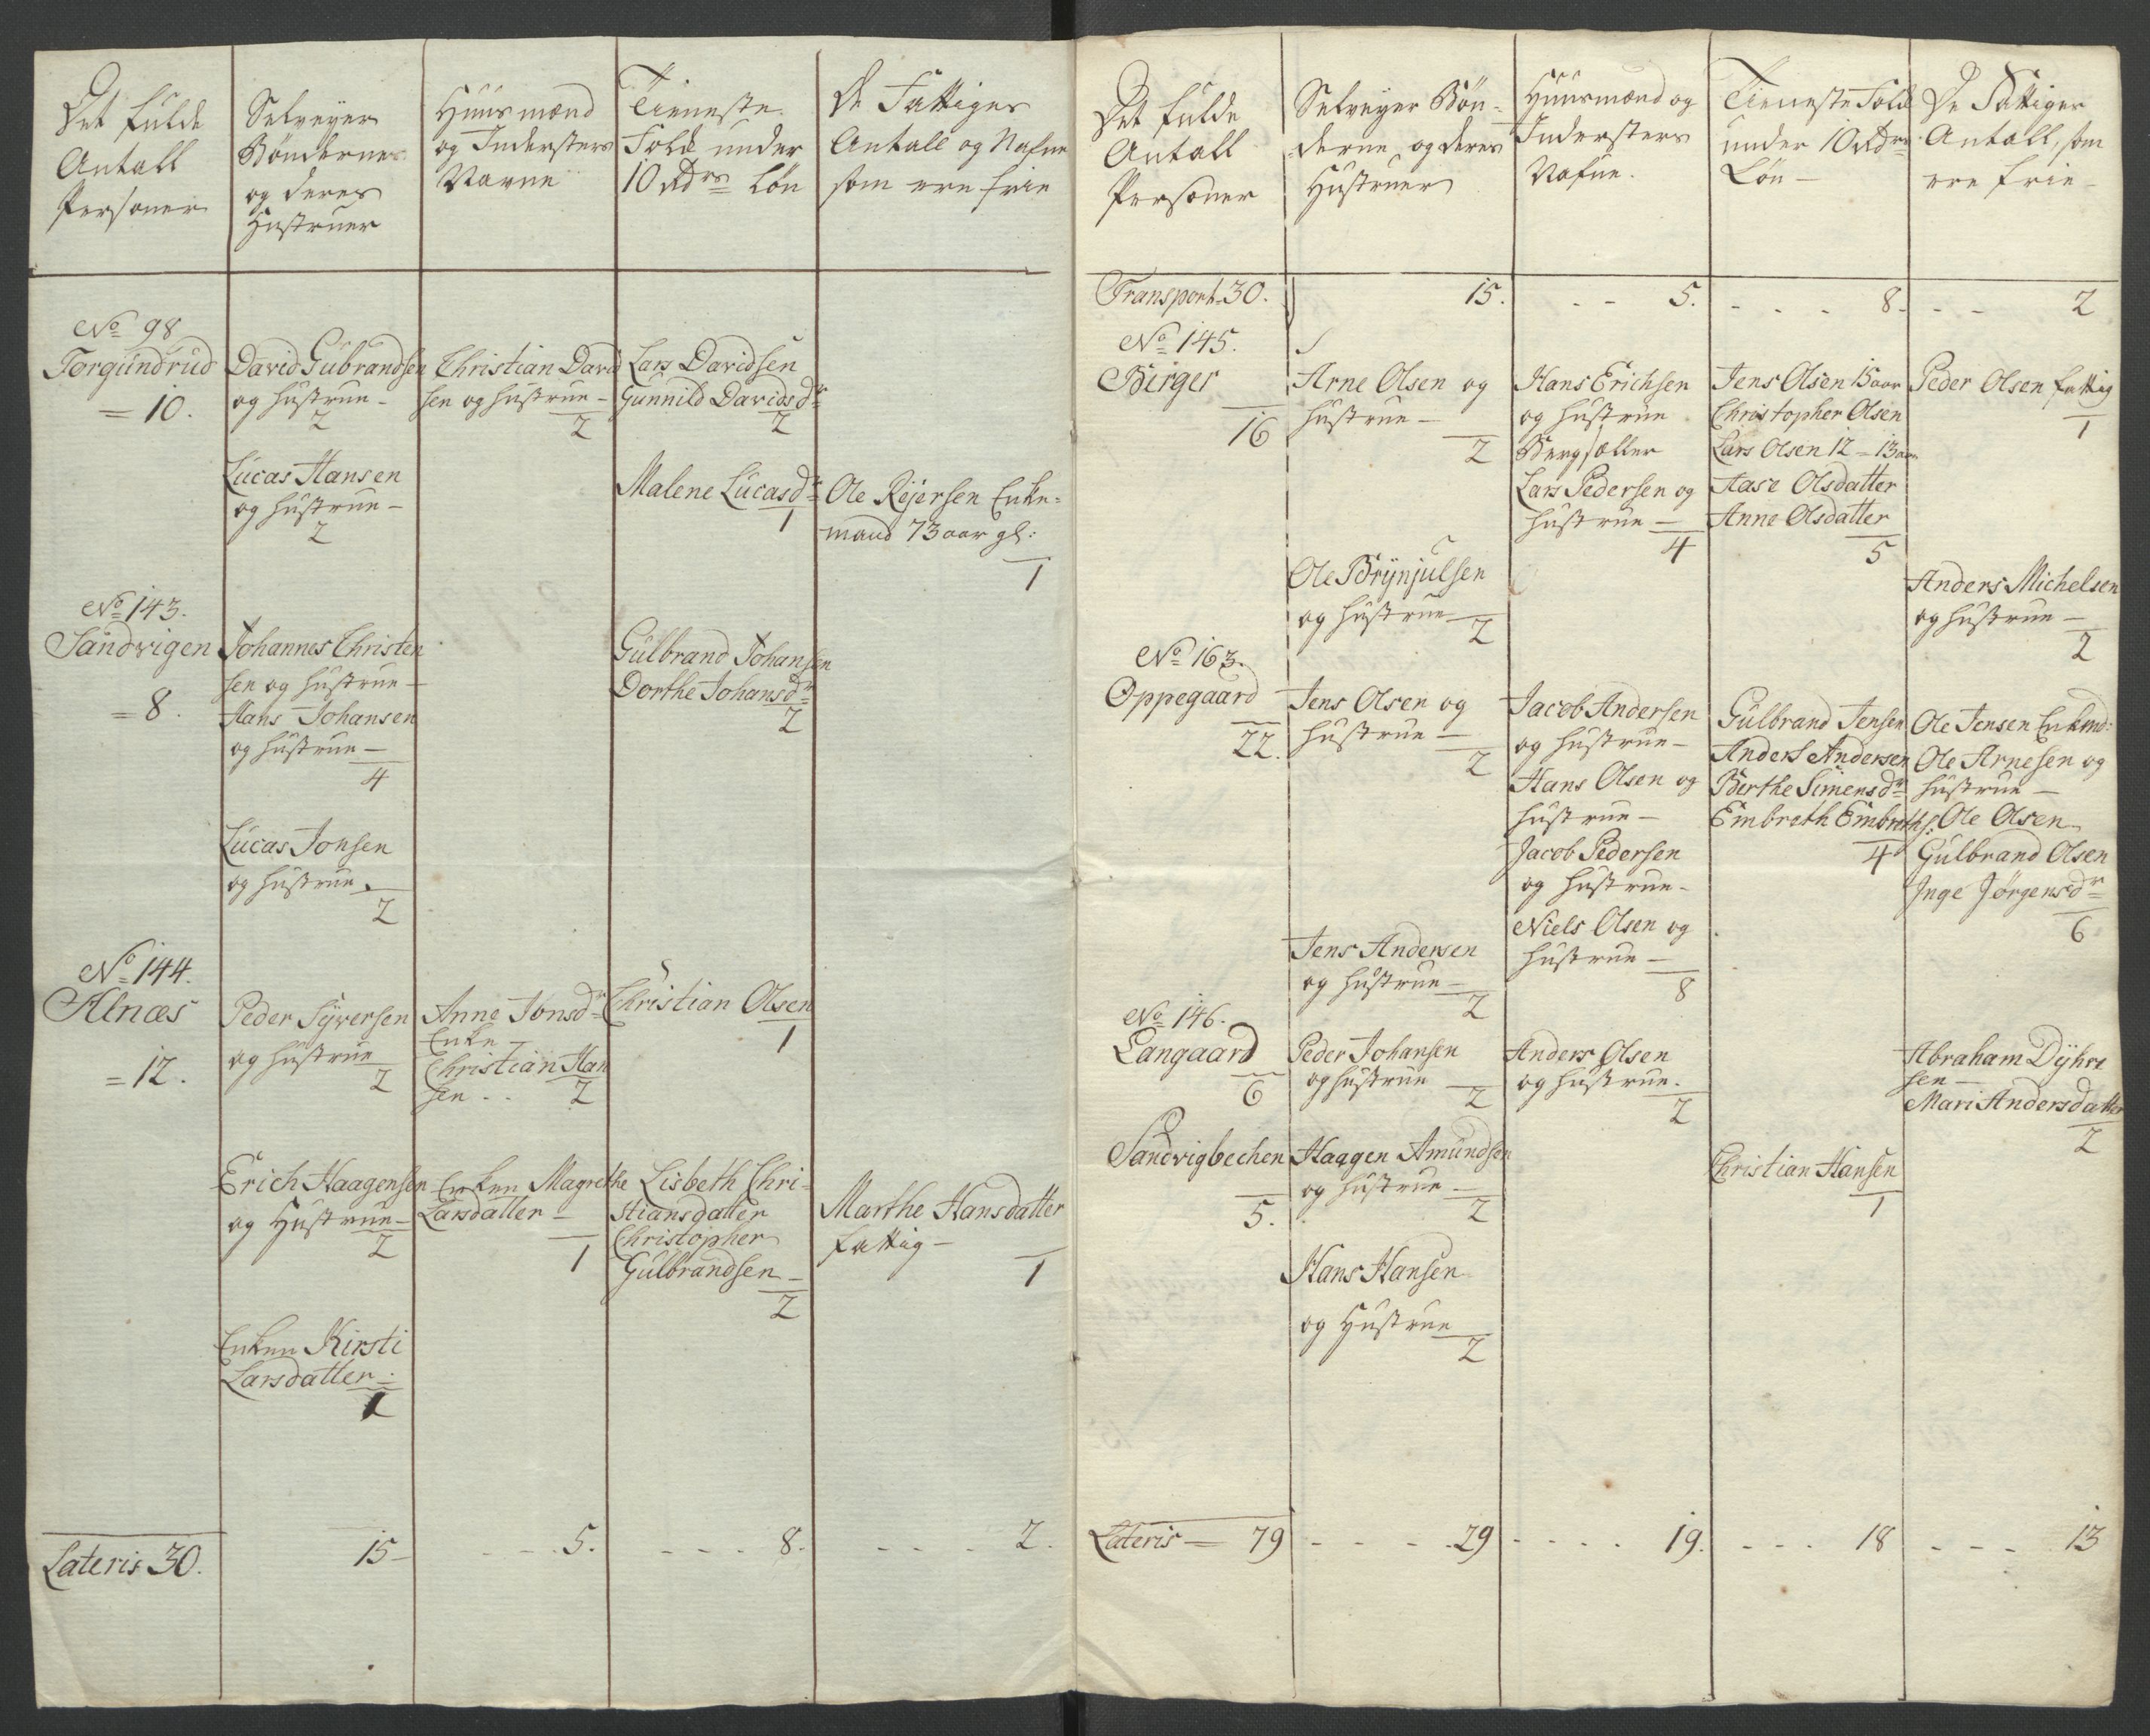 Det fulde
Antall
Personer
Selveyer
Bønderne
og deres
Hustruer
Huusmænd
og Indersters
Navne
Tieneste
Folk under
10 Rdrs Løn
De Fattiges
Antall og Nafne
som ere frie
No 98
Torgundrud
= 10.
David Gubrandsen
og hustrue -
2
Christian David
sen og hustrue -
2
Lars Davidsen
Gunnild Davidsdr
2
Lucas Hansen
og hustrue -
2
Malene Lucasdr
1
Ole Rejersen Enke-
mand 73 aar gl:
1
No 143.
Sandvigen
= 8.
Johannes Christen
sen og hustrue -
Hans Johansen
og hustrue -
4
Gulbrand Johansen
Dorthe Johansdr
2
Lucas Jonsen
og hustrue.
2
No 144.
Alnæs
= 12.
Peder Syversen
og hustrue
2
Anne Jonsdr
Enke -
Christian Han
sen . . 2
Christian Olsen
1
Erich Haagensen
og Hustrue -
2
Enken Magrethe
Larsdatter -
1
Lisbeth Chri-
stiansdatter
Christopher
Gulbrandsen -
2
Marthe Hansdatter
fattig -
1
Enken Kirsti
Larsdatter -
1
Lateris 30. 15 - - - - 5. - - - 8. - - - - 2.
Det fulde
Antall
Personer
Selveyer Bøn-
derne og deres
Hustruer
Huusmænd og
Indersters
Nafne.
Tieneste Folk
under 10 Rdrs
Løn -
De Fattiges
Antall, som
ere frie -
Transport 30. 15. - - 5. - - - - 8. - - 2
No 145.
Birger
16
Arne Olsen og
hustrue -
2
Hans Erichsen
og hustrue
Bergsætter
Lars Pedersen og
hustrue -
4
Jens Olsen 15 aar
Christopher Olsen
Lars Olsen 12 - 13 aar
Aase Olsdatter
Anne Olsdatter
5
Peder Olsen fattig
1
Ole Brynjulsen
og hustrue
2
Anders Michelsen
og hustrue -
2
No 163.
Oppegaard
22.
Jens Olsen og
hustrue -
2
Jacob Andersen
og hustrue -
Hans Olsen og
hustrue -
Jacob Pedersen
og hustrue -
Niels Olsen og
hustrue -
8
Gulbrand Jensen
Anders Andersen
Berthe Simensdr
Embreth Embreths:
4
Ole Jensen Enkmd:
Ole Arnesen og
hustrue -
Ole Olsen
Gulbrand Olsen
Inge Jørgensdr
6
Jens Andersen
og hustrue -
2
No 146.
Langaard
6
Peder Johansen
og hustrue
2
Anders Olsen
og hustrue.
2
Abraham Dyhre
sen -
Mari Andersdatter
2
Sandvigbechen
5.
Haagen Amundsen
og hustrue -
2
Christian Hansen
1
Hans Hansen
og Hustrue
2
Lateris - 79 - - - - 29 - - - - 19. - - - 18 - - - 13